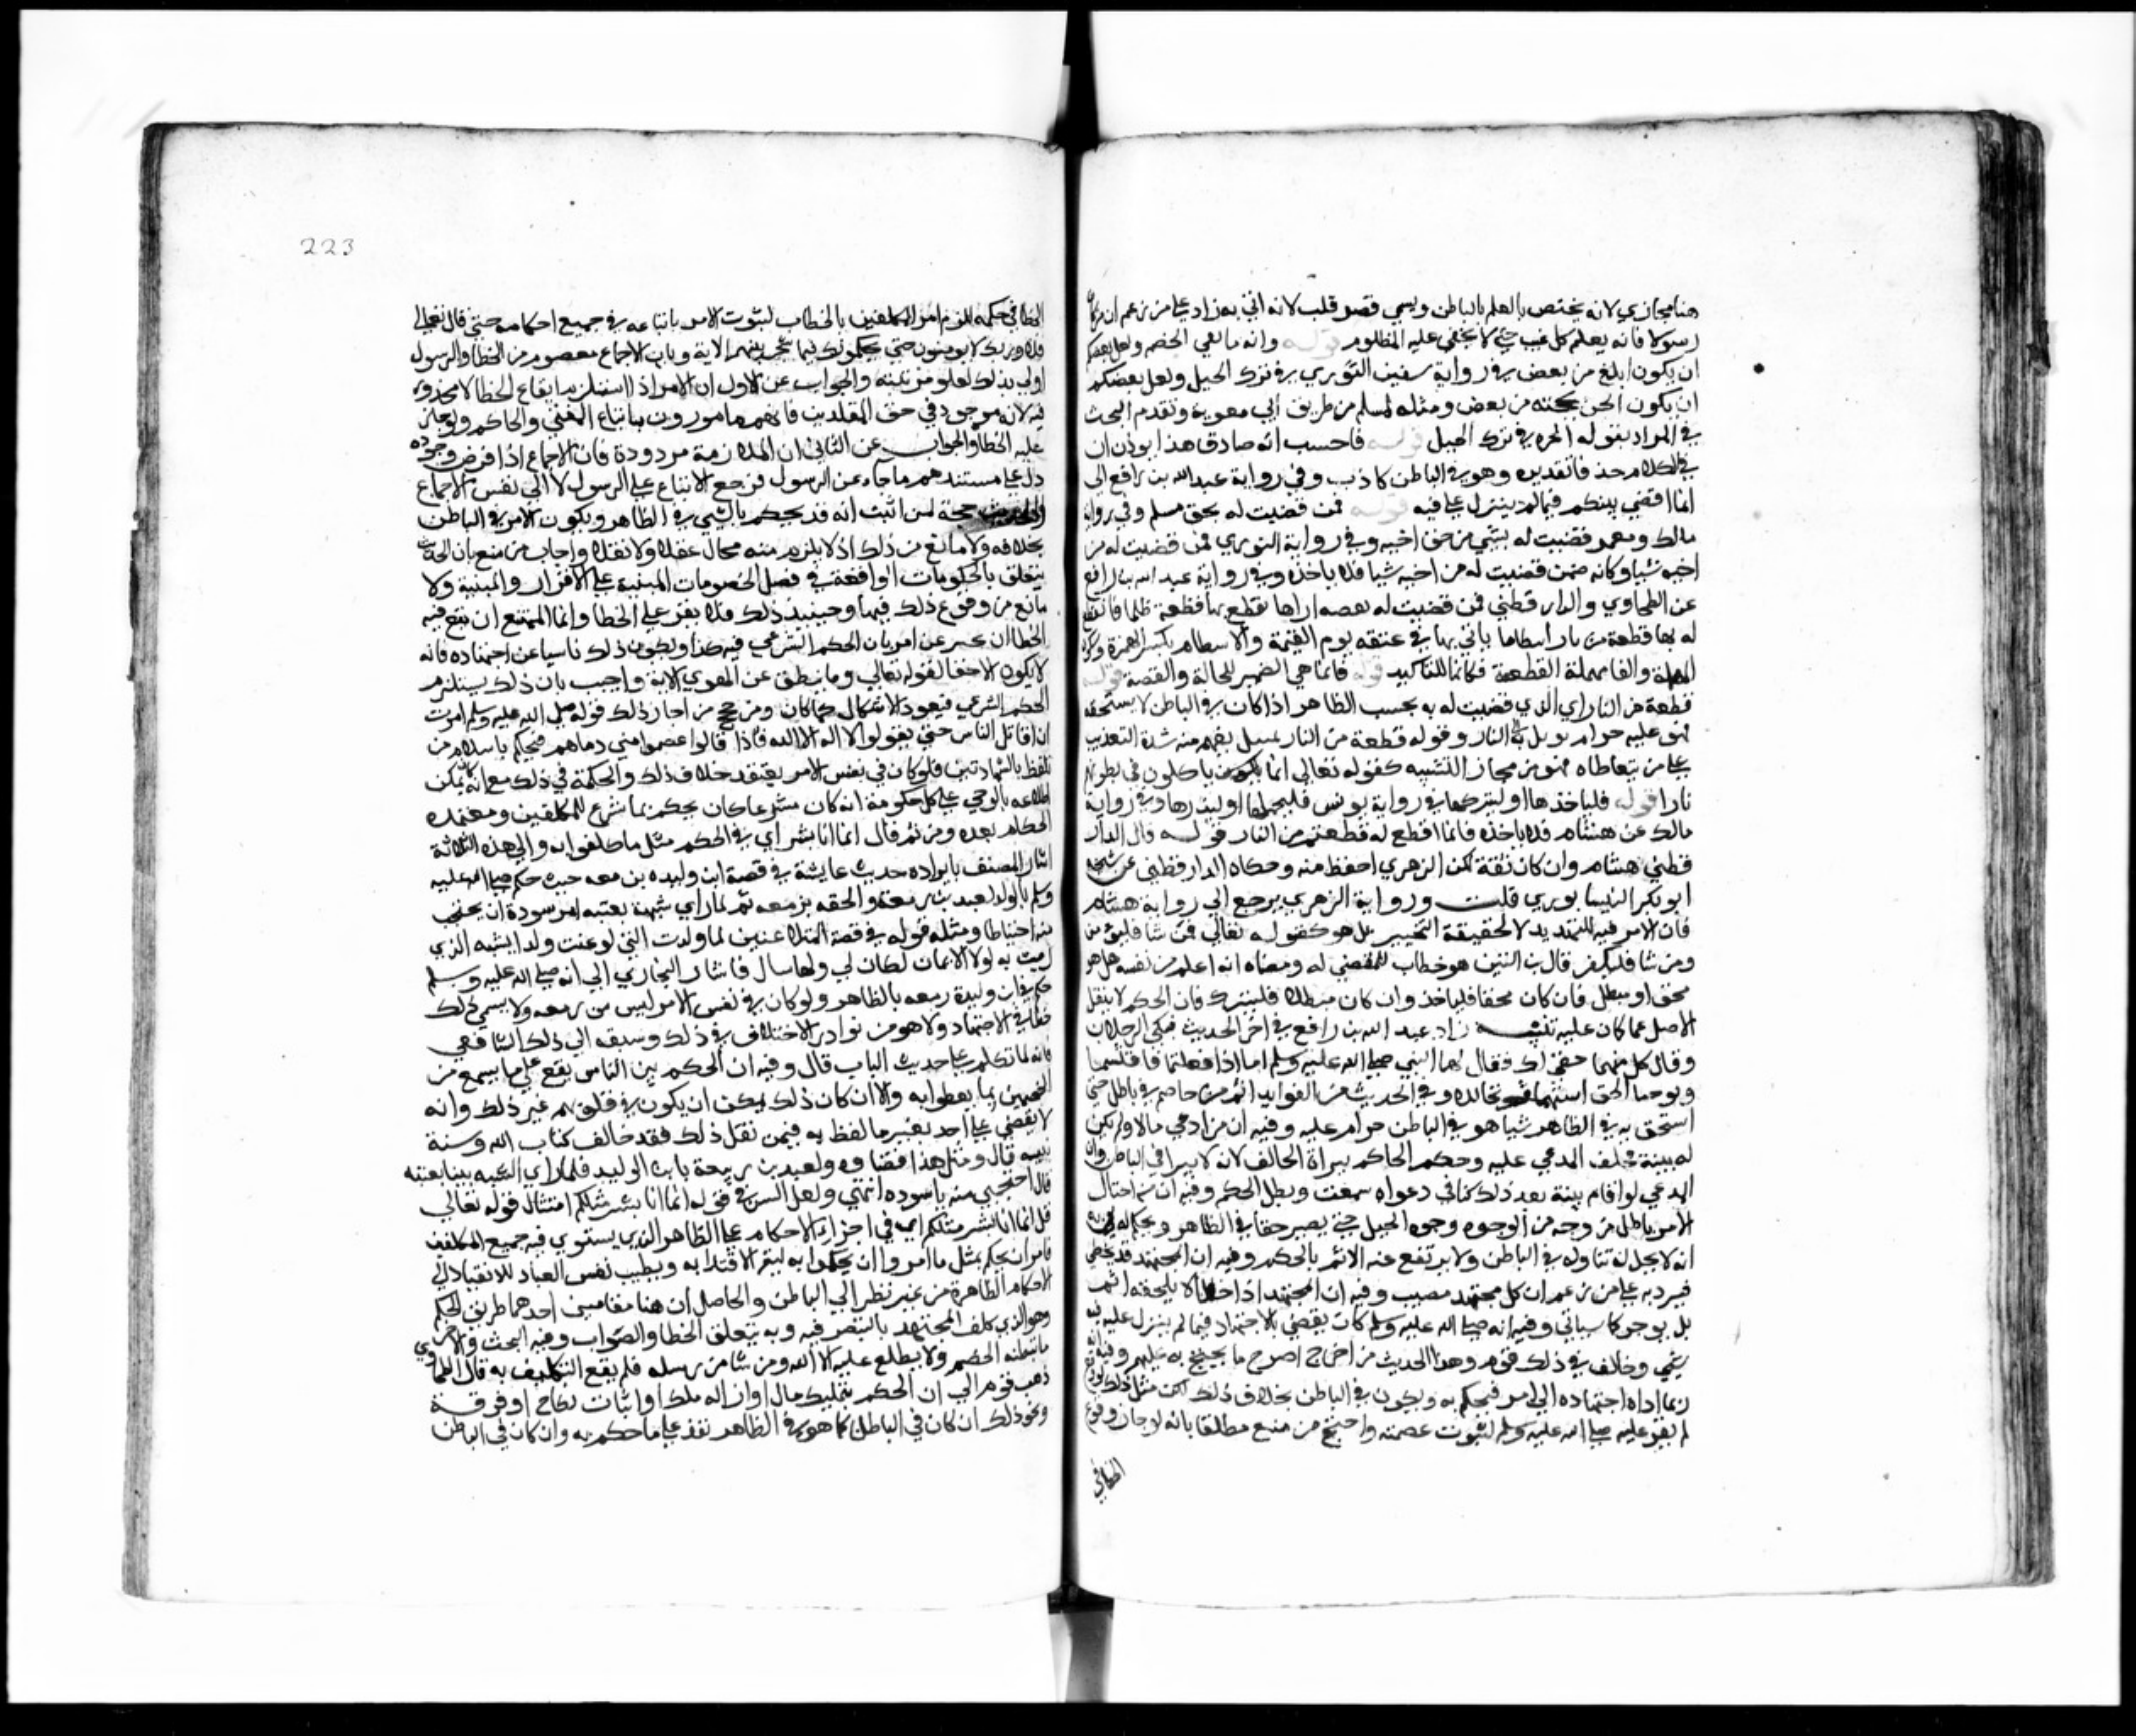 هنا مجازي لانه يختص بالعلم بالباطن ويسمي قصر قلب لانه اتي به ردا علي من زعم ان من كان
رسولا فانه يعلم كل غيب حتي لا يخفي عليه المظلوم قوله وانه ياتيني الخصم ولعل بعضكم
ان يكون ابلغ من بعض في رواية سفين الثوري في ترك الحيل ولعل بعضكم
ان يكون الحن بحجته من بعض ومثله لمسلم من طريق ابي معوية وتقدم البحث
في المراد بقوله الحن في ترك الحيل قوله فاحسب انه صادق هذا يوذن ان
في الكلام حذفا تقديره وهو في الباطن كاذب وفي رواية عبد الله بن رافع اني
انما اقضي بينكم فيما لم ينزل علي فيه قوله فمن قضيت له بحق مسلم وفي رواية
مالك ومعمر فمن قضيت له بشي من حق اخيه وفي رواية الثوري فمن قضيت له من
اخيه شيا وكانه ضمن قضيت له من اخيه شيا فلا ياخذه وفي رواية عبد الله بن رافع
عن الطحاوي والدارقطني فمن قضيت له بقضية اراها يقطع بها قطعة ظلما فانما يقطع
له بها قطعة من نار اسطاما ياتي بها في عنقه يوم القيمة والاسطام بكسر الهمزة وسكون
المهملة والطا مهملة القطعة فكانها للتاكيد قوله فانما هي الضمير للحالة والقصة قوله
قطعة من النار اي الذي قضيت له به بحسب الظاهر اذا كان في الباطن لا يستحقه
فهو عليه حرام يول به الي النار وقوله قطعة من النار تمثيل يفهم منه شدة التعذيب
علي من يتعاطاه فهو من مجاز التشبيه كقوله تعالي انما ياكلون في بطونهم
نارا قوله فلياخذها او ليتركها في رواية يونس فليحملها او ليذرها وفي رواية
مالك عن هشام فلا ياخذه فانما اقطع له قطعة من النار قوله قال الدار
قطني هشام وان كان ثقة لكن الزهري احفظ منه وحكاه الدارقطني عن شيخه
ابو بكر النيسابوري قلت ورواية الزهري يرجع الي رواية هشام
فان الامر فيه للتهديد لا لحقيقة التخيير بل هو كقوله تعالي فمن شا فليومن
ومن شا فليكفر قال بن التين هو خطاب للمقضي له ومعناه انه اعلم من نفسه هل هو
محق او مبطل فان كان محقا فلياخذ وان كان مبطلا فليترك فان الحكم لا ينقل
الاصل عما كان عليه تنبيه زاد عبد الله بن رافع في اخر الحديث فبكي الرجلان
وقال كل منهما حقي لك فقال لهما النبي صلي الله عليه وسلم اما اذا فعلتما فاقتسما
وتوخيا الحق ثم استهما ثم تحاللا وفي الحديث من الفوايد اثم من خاصم في باطل حتي
استحق به في الظاهر شيا هو في الباطن حرام عليه وفيه ان من ادعي مالا ولم يكن
له بينة فحلف المدعي عليه وحكم الحاكم ببراة الحالف لانه لا يبرا في الباطن وان
المدعي لو اقام بينة بعد ذلك تنافي دعواه سمعت وبطل الحكم وفيه ان من احتال
لامر باطل من وجه من الوجوه وجوه الحيل حتي يصير حقا في الظاهر ويحكم له به
انه لا يحل له تناوله في الباطن ولا يرتفع عنه الاثم بالحكم وفيه ان المجتهد قد يخطي
فيرد به علي من زعم ان كل مجتهد مصيب وفيه ان المجتهد اذا اخطا لا يلحقه اثم
بل يوجر كما سياتي وفيه انه صلي الله عليه وسلم كان يقضي بالاجتهاد فيما لم ينزل عليه فيه
شي وخالف في ذلك قوم وهذا الحديث من اصرح ما يحتج به عليهم وفيه انه
ربما اداه اجتهاده الي امر فيحكم به ويكون في الباطن بخلاف ذلك لكن مثل ذلك لو وقع
لم يقر عليه صلي الله عليه وسلم لثبوت عصمته واحتج من منع مطلقا بانه لو جاز وقوع
الخطا في
223
الخطا في حكمه للزم امر المكلفين بالخطاب لثبوت الامر باتباعه في جميع احكامه حتي قال تعالي
فلا وربك لا يومنون حتي يحكموك فيما شجر بينهم الاية وبان الاجماع معصوم من الخطا والرسول
اولي بذلك لعلو مرتبته والجواب عن الاول ان الامر اذا استلزم ايقاع الخطا لا محذور
فيه لانه موجود في حق المقلدين فانهم مامورون باتباع المفتي والحاكم ولو جاز
عليه الخطا والجواب عن الثاني ان الملازمة مردودة فان الاجماع اذا فرض وجوده
دل علي مستندهم ما جاء عن الرسول فرجع الاتباع علي الرسول لا الي نفس الاجماع
الحديث حجة لمن اثبت انه قد يحكم بالشي في الظاهر ويكون الامر في الباطن
بخلافه ولا مانع من ذلك اذ لا يلزم منه محال عقلا ولا نقلا واجاب من منع بان الحديث
يتعلق بالحكومات الواقعة في فصل الخصومات المبنية علي الاقرار والبينة ولا
مانع من وقوع ذلك فيها وحينيذ ذلك فلا يقر علي الخطا وانما الممتنع ان يقع فيه
الخطا ان يخبر عن امر بان الحكم الشرعي فيه كذا ويكون ذلك ناشيا عن اجتهاده فانه
لا يكون الا حقا لقوله تعالي وما ينطق عن الهوي الاية واجيب بان ذلك يستلزم
الحكم الشرعي فيعود الاشكال كما كان ومن حجج من اجاز ذلك قوله صلي الله عليه وسلم امرت
ان اقاتل الناس حتي يقولوا لا اله الا الله فاذا قالوا عصموا مني دماهم فيحكم باسلام من
تلفظ بالشهادتين فلو كان في نفس الامر يعتقد خلاف ذلك والحكمة في ذلك مع انه كان يمكن
اطلاعه بالوحي علي كل حكومة انه كان مشرعا كان يحكم بما شرع للمكلفين ويعتمده
الحكام بعده ومن ثم قال انما انا بشر اي في الحكم مثل ما كلفوا به والي هذه الثلاثة
اشار المصنف بايراده حديث عايشة في قصة ابن وليده بن معه حيث حكم صلي الله عليه
وسلم بالولد لعبد بن زمعة والحقه بزمعه ثم لما راي شبهه بعتبه امر سودة ان يحتجب
منه احتياطا ومثله قوله في قصة المتلاعنين لما ولدت التي لوعنت ولدا يشبه الذي
رميت به لولا الايمان لكان لي ولها شان فاشار البخاري الي انه صلي الله عليه وسلم
حكم في ابن وليدة زمعه بالظاهر ولو كان في نفس الامر ليس من زمعه ولا يسمي ذلك
خطا في الاجتهاد ولا هو من نوادر الاختلاف في ذلك وسبقه الي ذلك الشافعي
فانه لما تكلم علي حديث الباب قال وفيه ان الحكم بين الناس يقع علي ما يسمع من
الخصمين بما لفظوا به والا ان كان ذلك يمكن ان يكون في قلوبهم غير ذلك وانه
لا يقضي علي احد بغير ما لفظ به فمن نقل ذلك فقد خالف كتاب الله وسنة
نبيه قال ومثل هذا قضاوه لعبد بن زمعة بابن الوليد فلما راي الشبه بينا بعتبه
قال احتجبي منه يا سوده انتهي ولعل السر في قوله انما انا بشر مثلكم امتثال قوله تعالي
قل انما انا بشر مثلكم اي في اجراء الاحكام علي الظاهر الذي يستوي فيه جميع المكلفين
فامر ان يحكم بمثل ما امروا ان يحكموا به ليتم الاقتدا به ويطيب نفس العباد للانقياد الي
الاحكام الظاهرة من غير نظر الي الباطن والحاصل ان هنا مقامين احدهما طريق الحكم
وهو الذي كلف المجتهد بالتبصر فيه وبه يتعلق الخطا والصواب وفيه البحث والاخر
ما يبطنه الخصم ولا يطلع عليه الا الله ومن شا من رسله فلم يقع التكليف به قال الطحاوي
ذهب قوم الي ان الحكم بتمليك مال او ازاله ملك او اثبات نكاح او فرقة
ونحو ذلك ان كان في الباطن كما هو في الظاهر نفذ علي ما حكم به وان كان في الباطن